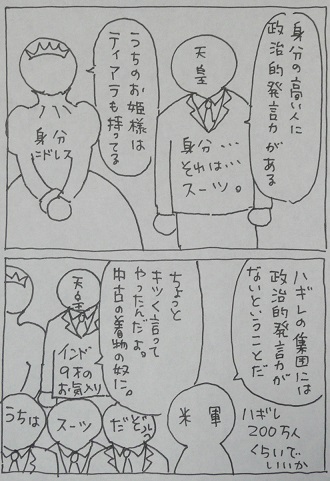 身分の高い人に
政治的発言力がある
天皇
身分…
それは…
スーツ。
うちのお姫様は
ティアラも持ってる
身分
にドレス
ハギレの集団には
政治的発言力が
ないということだ
ちょっと
キツく言って
やったんだよ。
中古の着物の奴に。
天皇
インド
9才の
お気入り
うちは
スーツ
だぞっ
米軍
ハギレ
200万人
くらいで
いいか